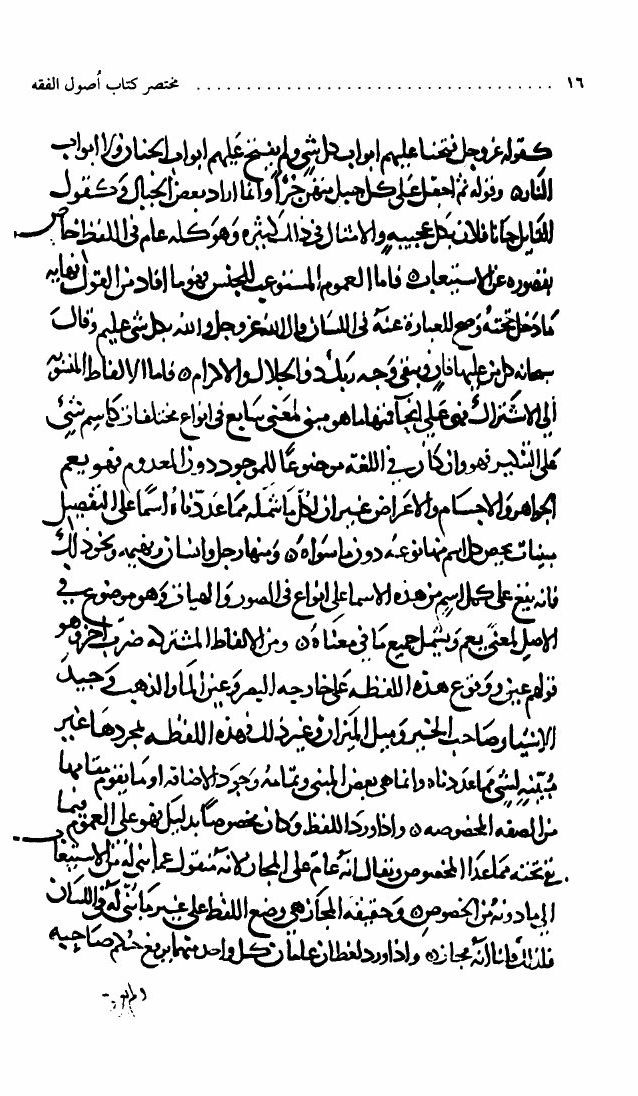 ١٦ ................................ مختصر كتاب أصول الفقه
كقوله عز وجل فتحنا عليهم ابواب كل شي ولم يفتح عليهم ابواب الجنان ولا ابواب
النار ۞ وقوله ثم اجعل على كل جبل منهن جزأ وانما اراد بعض الجبال وكقول
القايل جانا فلان بكل عجيبه والامثال في ذلك كثيره وهو كله عام في اللفظ خاص
بقصوره عن الاستيعاب ۞ فاما العموم المستوعب للجنس فهو ما افاد من القول نهايه
ما دخل تحته وصح للعبارة عنه في اللسان قال الله عز وجل والله بكل شي عليم وقال
سبحانه كل من عليها فان ويبقى وجه ربك ذو الجلال والاكرام ۞ فاما الالفاظ المنسوبه
الي الاشتراك فهي على انحآ فمنها ما هو مبني لمعنى سايع في انواع مختلفات كاسم شيئ
على التنكير فهو وان كان في اللغة موضوعًا للموجود دون المعدوم فهو يعم
الجواهر والاجسام والاعراض غير ان لكل ما شمله مما عددناه اسمًا على التفصيل
مبينات يخص كل اسم منها نوعه دون ما سواه ۞ ومنها رجل وانسان وبهيمه ونحو ذلك
فانه يقع على كل اسم من هذه الاسما على انواع في الصور والهيات وهو موضوع في
الاصل لمعنى يعم ويشمل جميع ما في معناه ۞ ومن الالفاظ المشتركه ضرب اخر وهو
قولهم عين ووقوع هذه اللفظه على جارحه البصر وعين الما والذهب وجيد
الاشيا وصاحب الخبر وميل الميزان وغير ذلك فهذه اللفظه بمجردها غير
مبينه لشي مما عددناه وانما هي بعض المبني وتمامه وجود الاضافه او ما يقوم مقامها
من الصفه المخصوصه ۞ واذا ورد اللفظ وكان مخصوصًا بدليل فهو على العموم فيما
بقي تحته مما عدا المخصوص ويقال انه عام على المجاز لانه منقول عما بني له من الاستيعاب
الي ما دونه من الخصوص ۞ وحقيقه المجاز هي وضع اللفظ على غير ما بني له في اللسان
فلذلك قلنا انه مجاز ۞ واذا ورد لفظان عامان كل واحد منهما يرفع حكم صاحبه